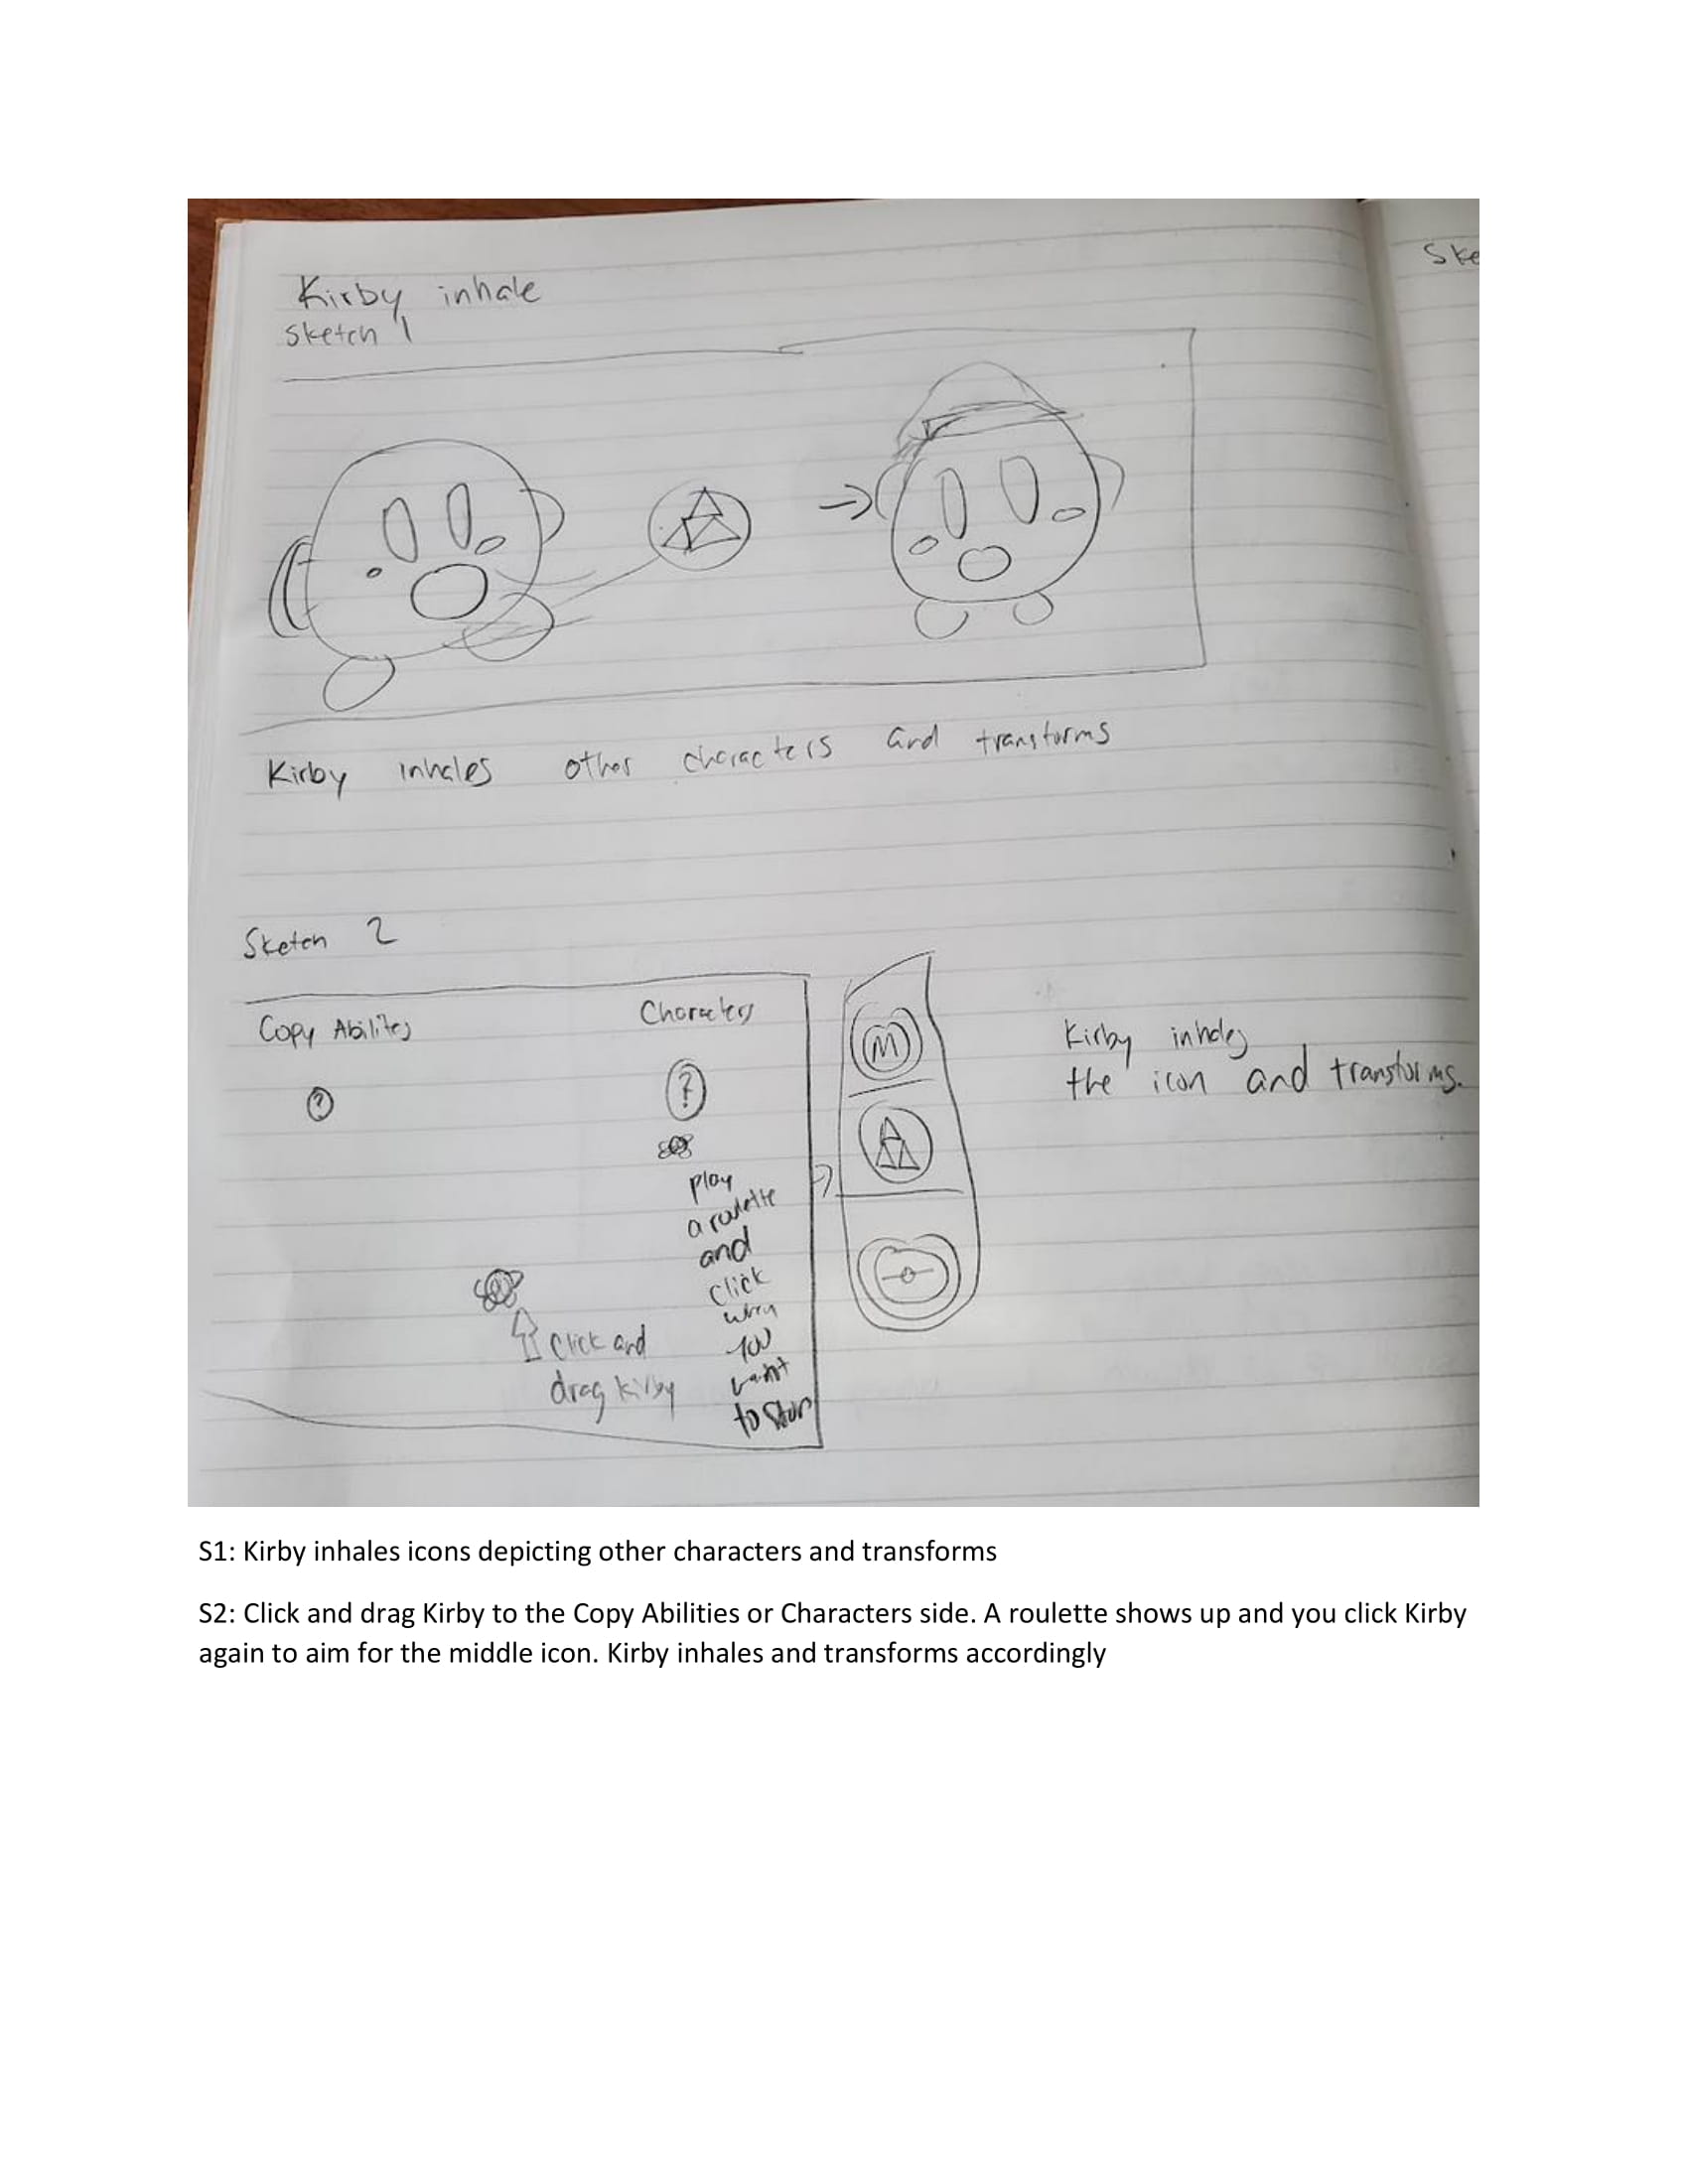 Ske
Kirby inhale
Sketch 1
Kirby inhales other characters and transforms
Sketch 2
Copy Abilites
Characters
?
?
M
play
a roulette
and
click
when
you
want
to stop
Click and
drag Kirby
Kirby inhales
the icon and transforms.
S1: Kirby inhales icons depicting other characters and transforms
S2: Click and drag Kirby to the Copy Abilities or Characters side. A roulette shows up and you click Kirby
again to aim for the middle icon. Kirby inhales and transforms accordingly